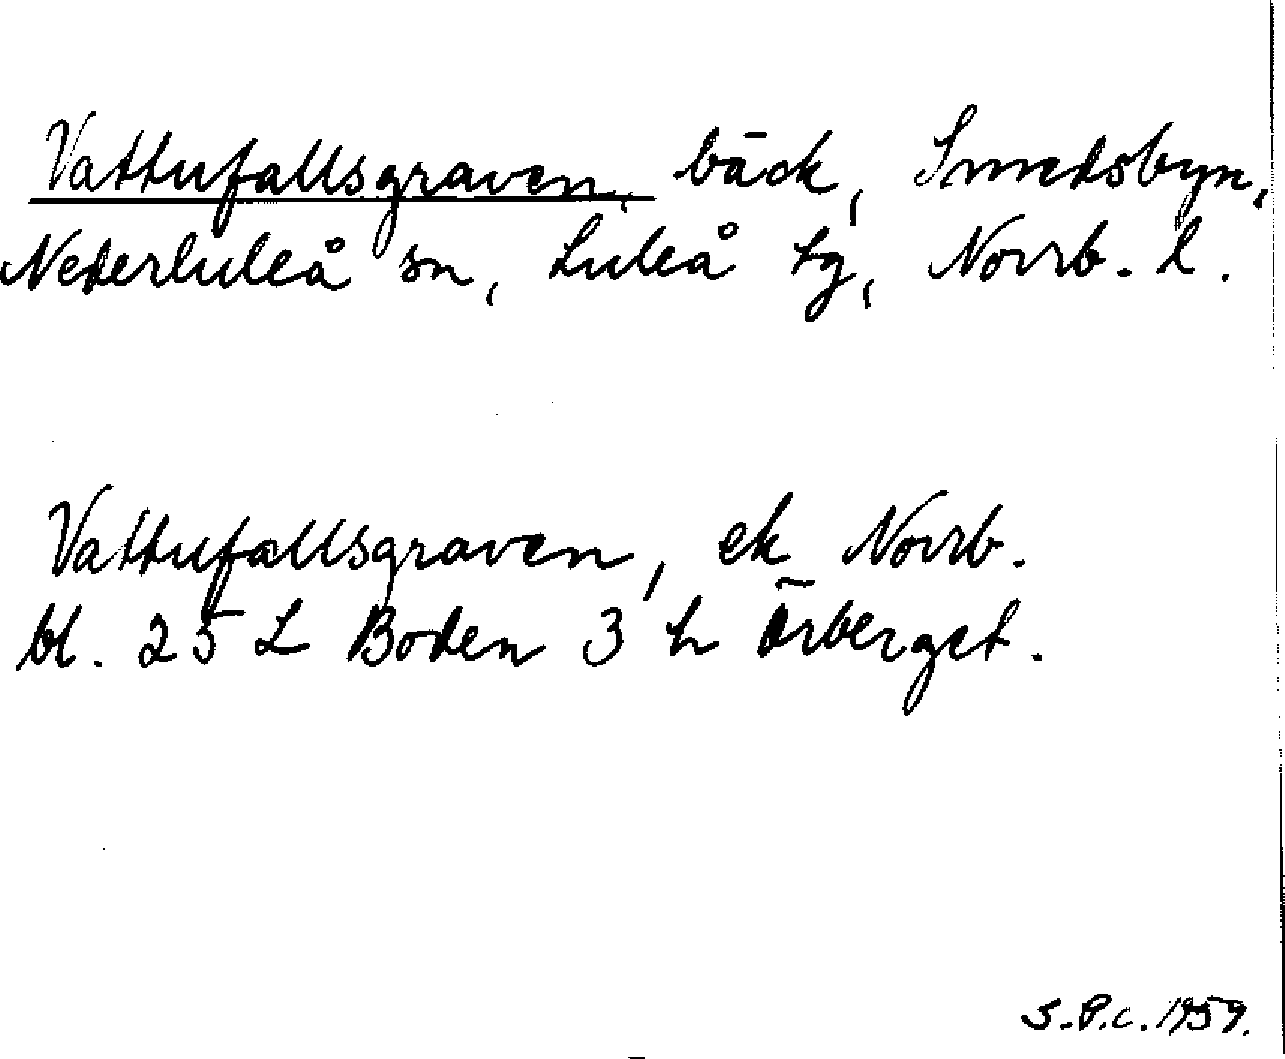 Vattufallsgraven, bäck, Smedsbyn,
Nederluleå sn, Luleå tg, Norrb. l.
Vattufallsgraven, ek Norrb.
bl. 25 L Boden 3 h Örberget.
S.P.C. 1959.